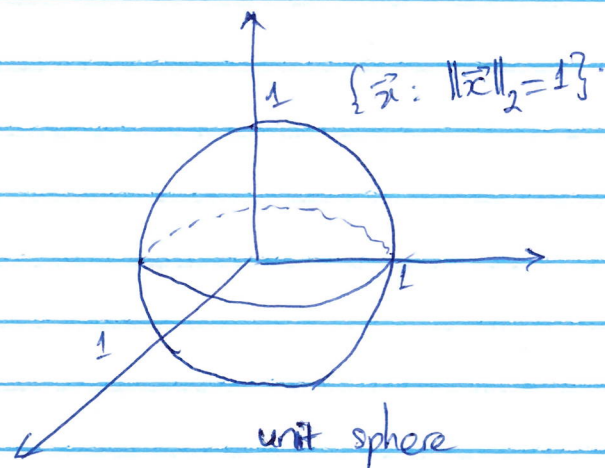 1
{x⃗ : ‖x⃗‖₂=1}
1
1
unit sphere